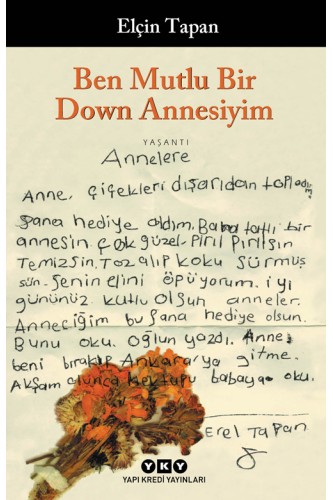 Elçin Tapan
Ben Mutlu Bir
Down Annesiyim
YAŞANTI
Annelere
Anne, çiçekleri dışarıdan topladım
sana hediye aldım. Bana tatlı bir
annesin çok güzel pırıl pırılsın
Temizsin, Toz alıp koku sürmüş
sün. Senin elini öpüyorum. iyi
gününüz kutlu olsun anneler.
Anneciğim bu sana hediye olsun.
Bunu oku. oğlun yazdı. Anne
beni bırakıp Ankara'ya gitme.
Akşam olunca mektupu babaya oku.
Erel Tapan
YKY
YAPI KREDİ YAYINLARI